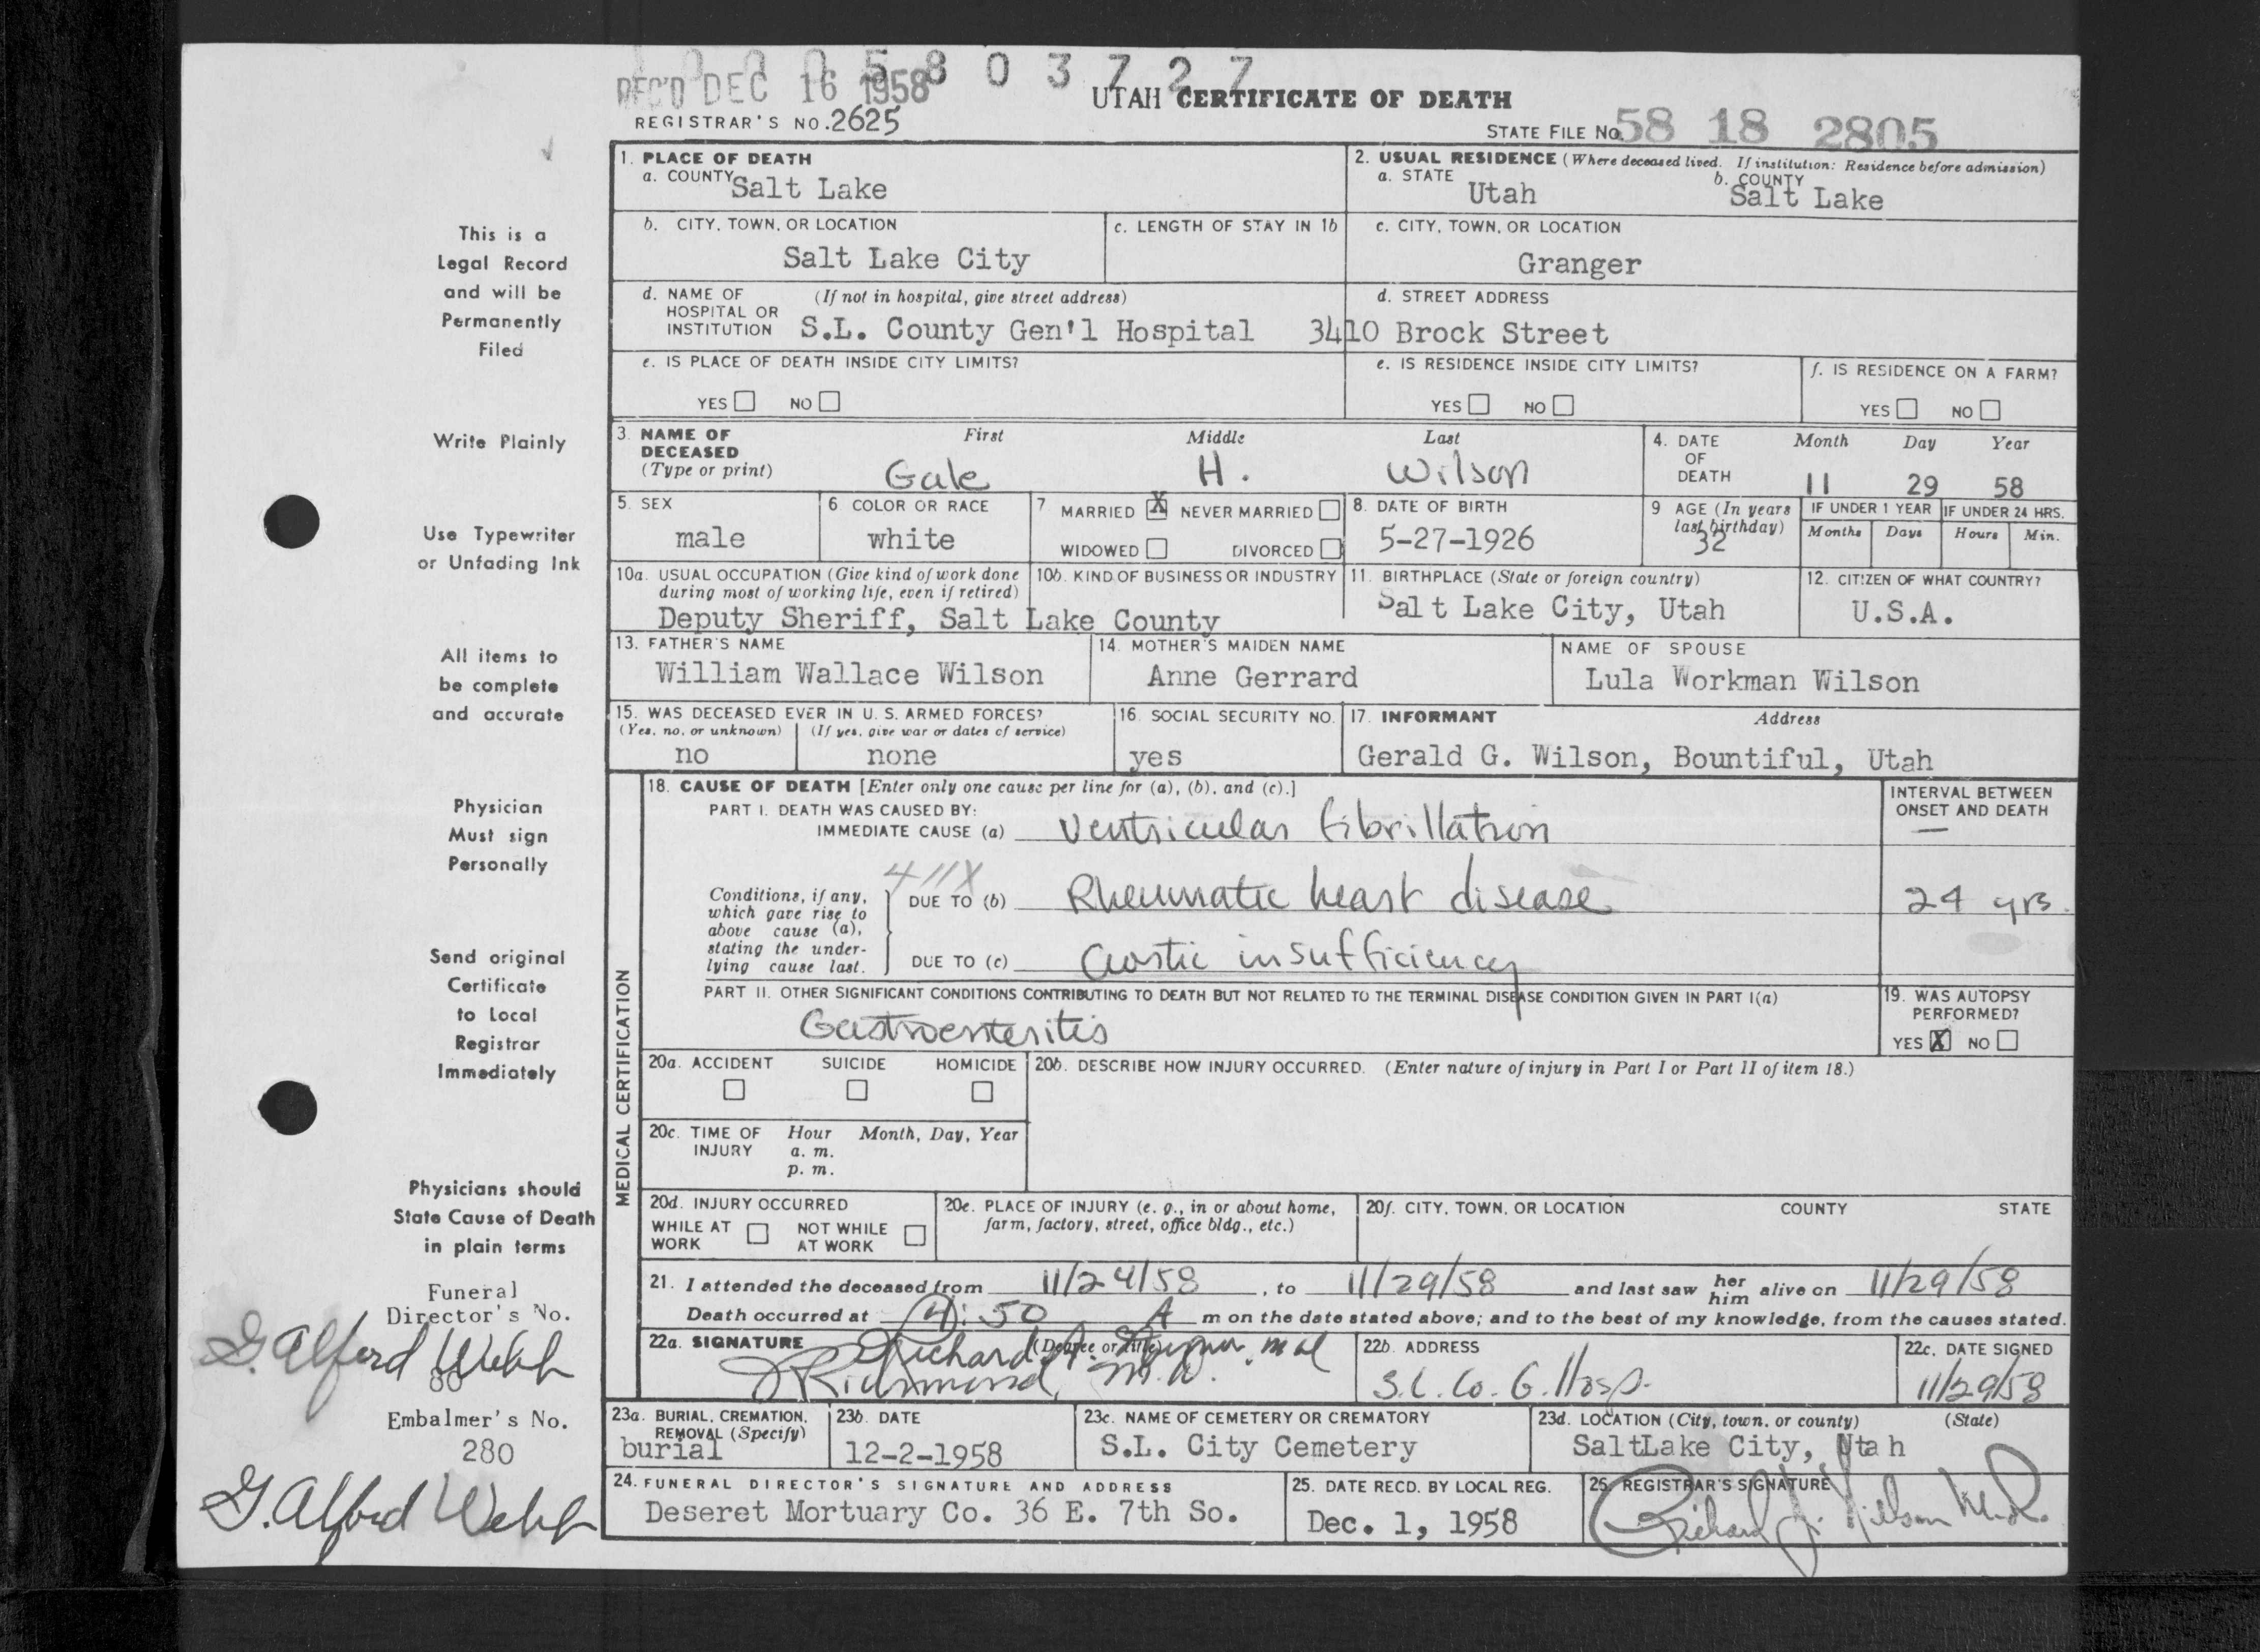 1 0 0 5 8 0 3 7 2 7
REC'D DEC 16 1958
UTAH CERTIFICATE OF DEATH
REGISTRAR'S NO. 2625
STATE FILE No. 58 18 2805
This is a
Legal Record
and will be
Permanently
Filed
Write Plainly
Use Typewriter
or Unfading Ink
All items to
be complete
and accurate
Physician
Must sign
Personally
Send original
Certificate
to Local
Registrar
Immediately
Physicians should
State Cause of Death
in plain terms
Funeral
Director's No.
G. Alford Webb
80
Embalmer's No.
280
G. Alford Webb
1. PLACE OF DEATH
a. COUNTY Salt Lake
2. USUAL RESIDENCE (Where deceased lived. If institution: Residence before admission)
a. STATE Utah b. COUNTY Salt Lake
b. CITY, TOWN, OR LOCATION
Salt Lake City
c. LENGTH OF STAY IN 1b
c. CITY, TOWN, OR LOCATION
Granger
d. NAME OF HOSPITAL OR INSTITUTION (If not in hospital, give street address)
S.L. County Gen'l Hospital
d. STREET ADDRESS
3410 Brock Street
e. IS PLACE OF DEATH INSIDE CITY LIMITS?
YES NO
e. IS RESIDENCE INSIDE CITY LIMITS?
YES NO
f. IS RESIDENCE ON A FARM?
YES NO
3. NAME OF DECEASED (Type or print)
First Middle Last
Gale H. Wilson
4. DATE OF DEATH Month Day Year
11 29 58
5. SEX
male
6. COLOR OR RACE
white
7. MARRIED X NEVER MARRIED
WIDOWED DIVORCED
8. DATE OF BIRTH
5-27-1926
9 AGE (In years last birthday)
32
IF UNDER 1 YEAR IF UNDER 24 HRS.
Months Days Hours Min.
10a. USUAL OCCUPATION (Give kind of work done during most of working life, even if retired)
10b. KIND OF BUSINESS OR INDUSTRY
Deputy Sheriff, Salt Lake County
11. BIRTHPLACE (State or foreign country)
Salt Lake City, Utah
12. CITIZEN OF WHAT COUNTRY?
U.S.A.
13. FATHER'S NAME
William Wallace Wilson
14. MOTHER'S MAIDEN NAME
Anne Gerrard
NAME OF SPOUSE
Lula Workman Wilson
15. WAS DECEASED EVER IN U. S. ARMED FORCES?
(Yes, no, or unknown) (If yes, give war or dates of service)
no none
16. SOCIAL SECURITY NO.
yes
17. INFORMANT Address
Gerald G. Wilson, Bountiful, Utah
MEDICAL CERTIFICATION
18. CAUSE OF DEATH [Enter only one cause per line for (a), (b), and (c).]
PART I. DEATH WAS CAUSED BY:
IMMEDIATE CAUSE (a) Ventricular fibrillation
INTERVAL BETWEEN ONSET AND DEATH
—
411X
Conditions, if any, which gave rise to above cause (a), stating the underlying cause last.
DUE TO (b) Rheumatic heart disease 24 yrs.
DUE TO (c) Aortic insufficiency
PART II. OTHER SIGNIFICANT CONDITIONS CONTRIBUTING TO DEATH BUT NOT RELATED TO THE TERMINAL DISEASE CONDITION GIVEN IN PART I(a)
Gastroenteritis
19. WAS AUTOPSY PERFORMED?
YES X NO
20a. ACCIDENT SUICIDE HOMICIDE
20b. DESCRIBE HOW INJURY OCCURRED. (Enter nature of injury in Part I or Part II of item 18.)
20c. TIME OF INJURY Hour Month, Day, Year
a. m.
p. m.
20d. INJURY OCCURRED
WHILE AT WORK NOT WHILE AT WORK
20e. PLACE OF INJURY (e. g., in or about home, farm, factory, street, office bldg., etc.)
20f. CITY, TOWN, OR LOCATION COUNTY STATE
21. I attended the deceased from 11/24/58, to 11/29/58 and last saw her him alive on 11/29/58
Death occurred at 4:50 A m on the date stated above; and to the best of my knowledge, from the causes stated.
22a. SIGNATURE (Degree or title)
Richard md
Richmond, M.D.
22b. ADDRESS
S.L. Co. G. Hosp.
22c. DATE SIGNED
11/29/58
23a. BURIAL, CREMATION, REMOVAL (Specify)
burial
23b. DATE
12-2-1958
23c. NAME OF CEMETERY OR CREMATORY
S.L. City Cemetery
23d. LOCATION (City, town, or county) (State)
SaltLake City, Utah
24. FUNERAL DIRECTOR'S SIGNATURE AND ADDRESS
Deseret Mortuary Co. 36 E. 7th So.
25. DATE RECD. BY LOCAL REG.
Dec. 1, 1958
26. REGISTRAR'S SIGNATURE
Richard J. Nelson M.D.